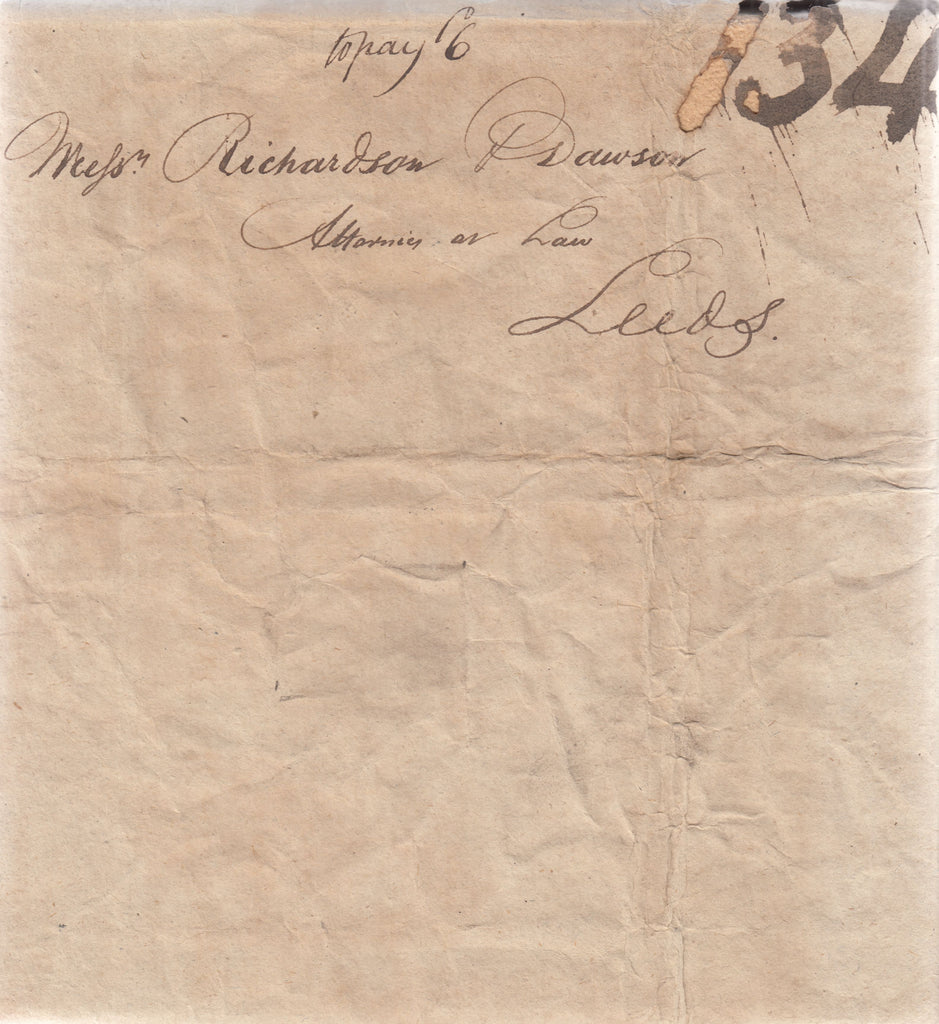 to pay /6
134
Messrs Richardson & Dawson
Attornies at Law
Leeds.